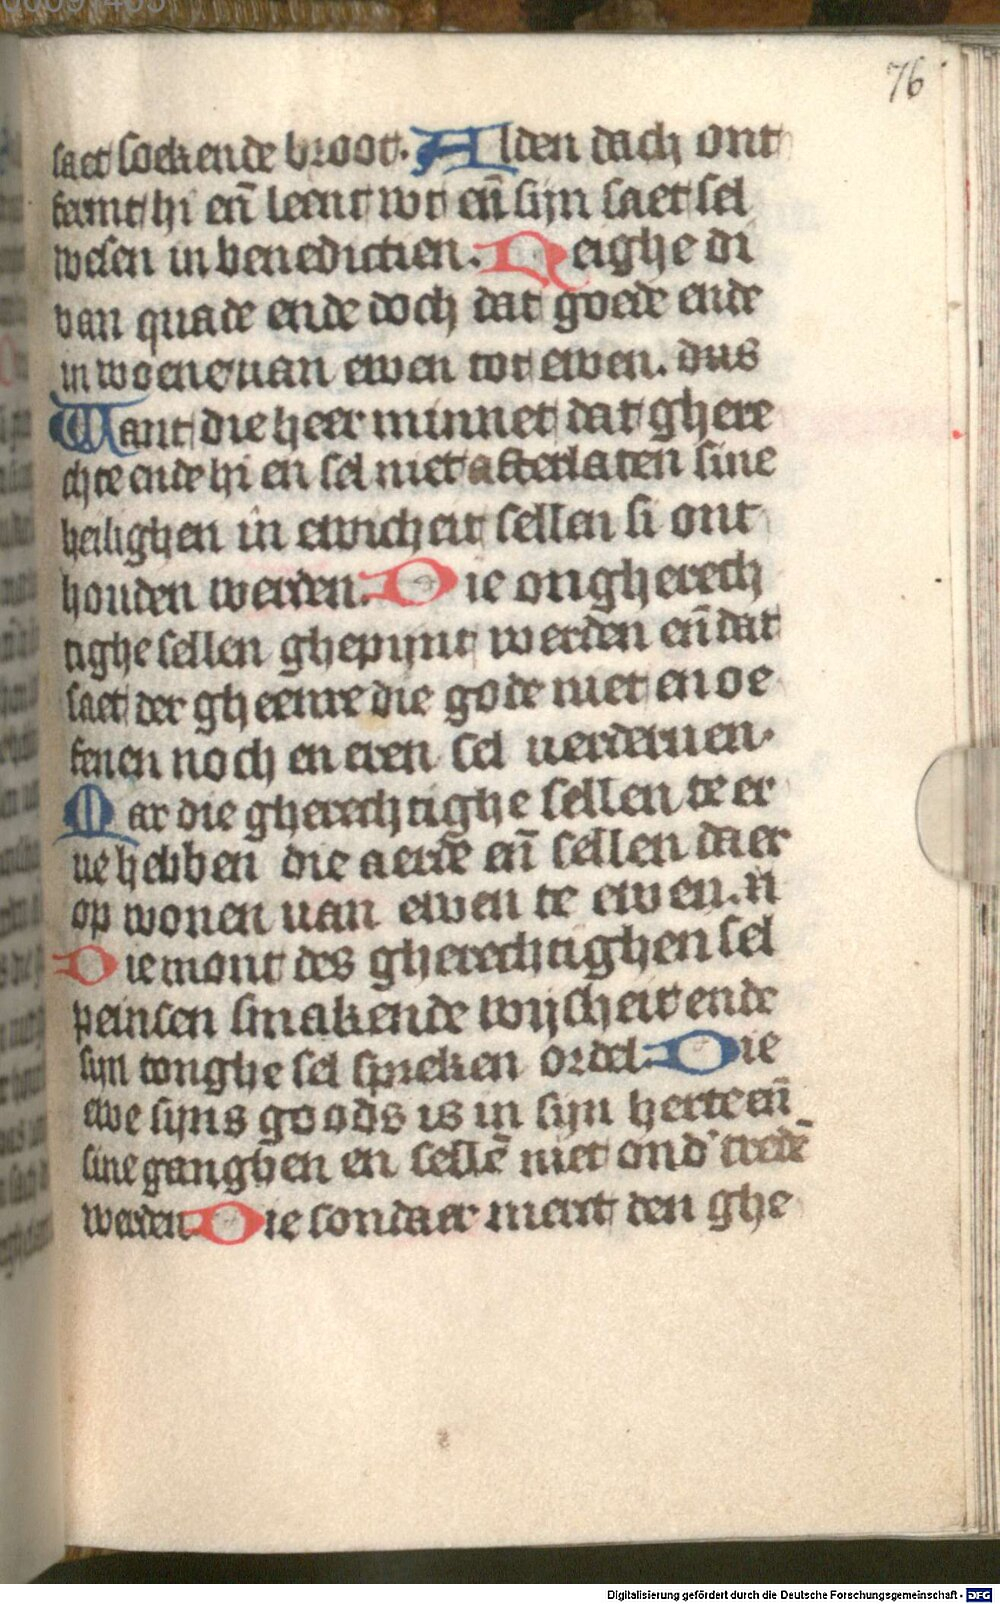 76
saet soekende broot. Alden dach ont
fermt hi en̄ leent wt en̄ sijn saet sel
wesen in benedictien. Neighe di
van quade ende doch dat goede ende
in woene van ewen tot ewen. dus
Want die heer minnet dat ghere
chte ende hi en sel niet afterlaten sine
heilighen in ewicheit sellen si ont
houden werden. Die ongherech
tighe sellen ghepijnt werden en̄ dat
saet der gheenre die gode niet en oe
fenen noch en eren sel verderuen.
Mar die gherechtighe sellen te er
ue hebben die aerde en̄ sellen daer
op wonen uan ewen te ewen. n̄
Die mont des gherechtighen sel
peinsen smakende wijsheit ende
sijn tonghe sel spreken ordel. Die
ewe sijns goods is in sijn herte en̄
sine ganghen en sellē niet ond' tredē
werden. Die sondaer merct den ghe
Digitalisierung gefördert durch die Deutsche Forschungsgemeinschaft - DFG